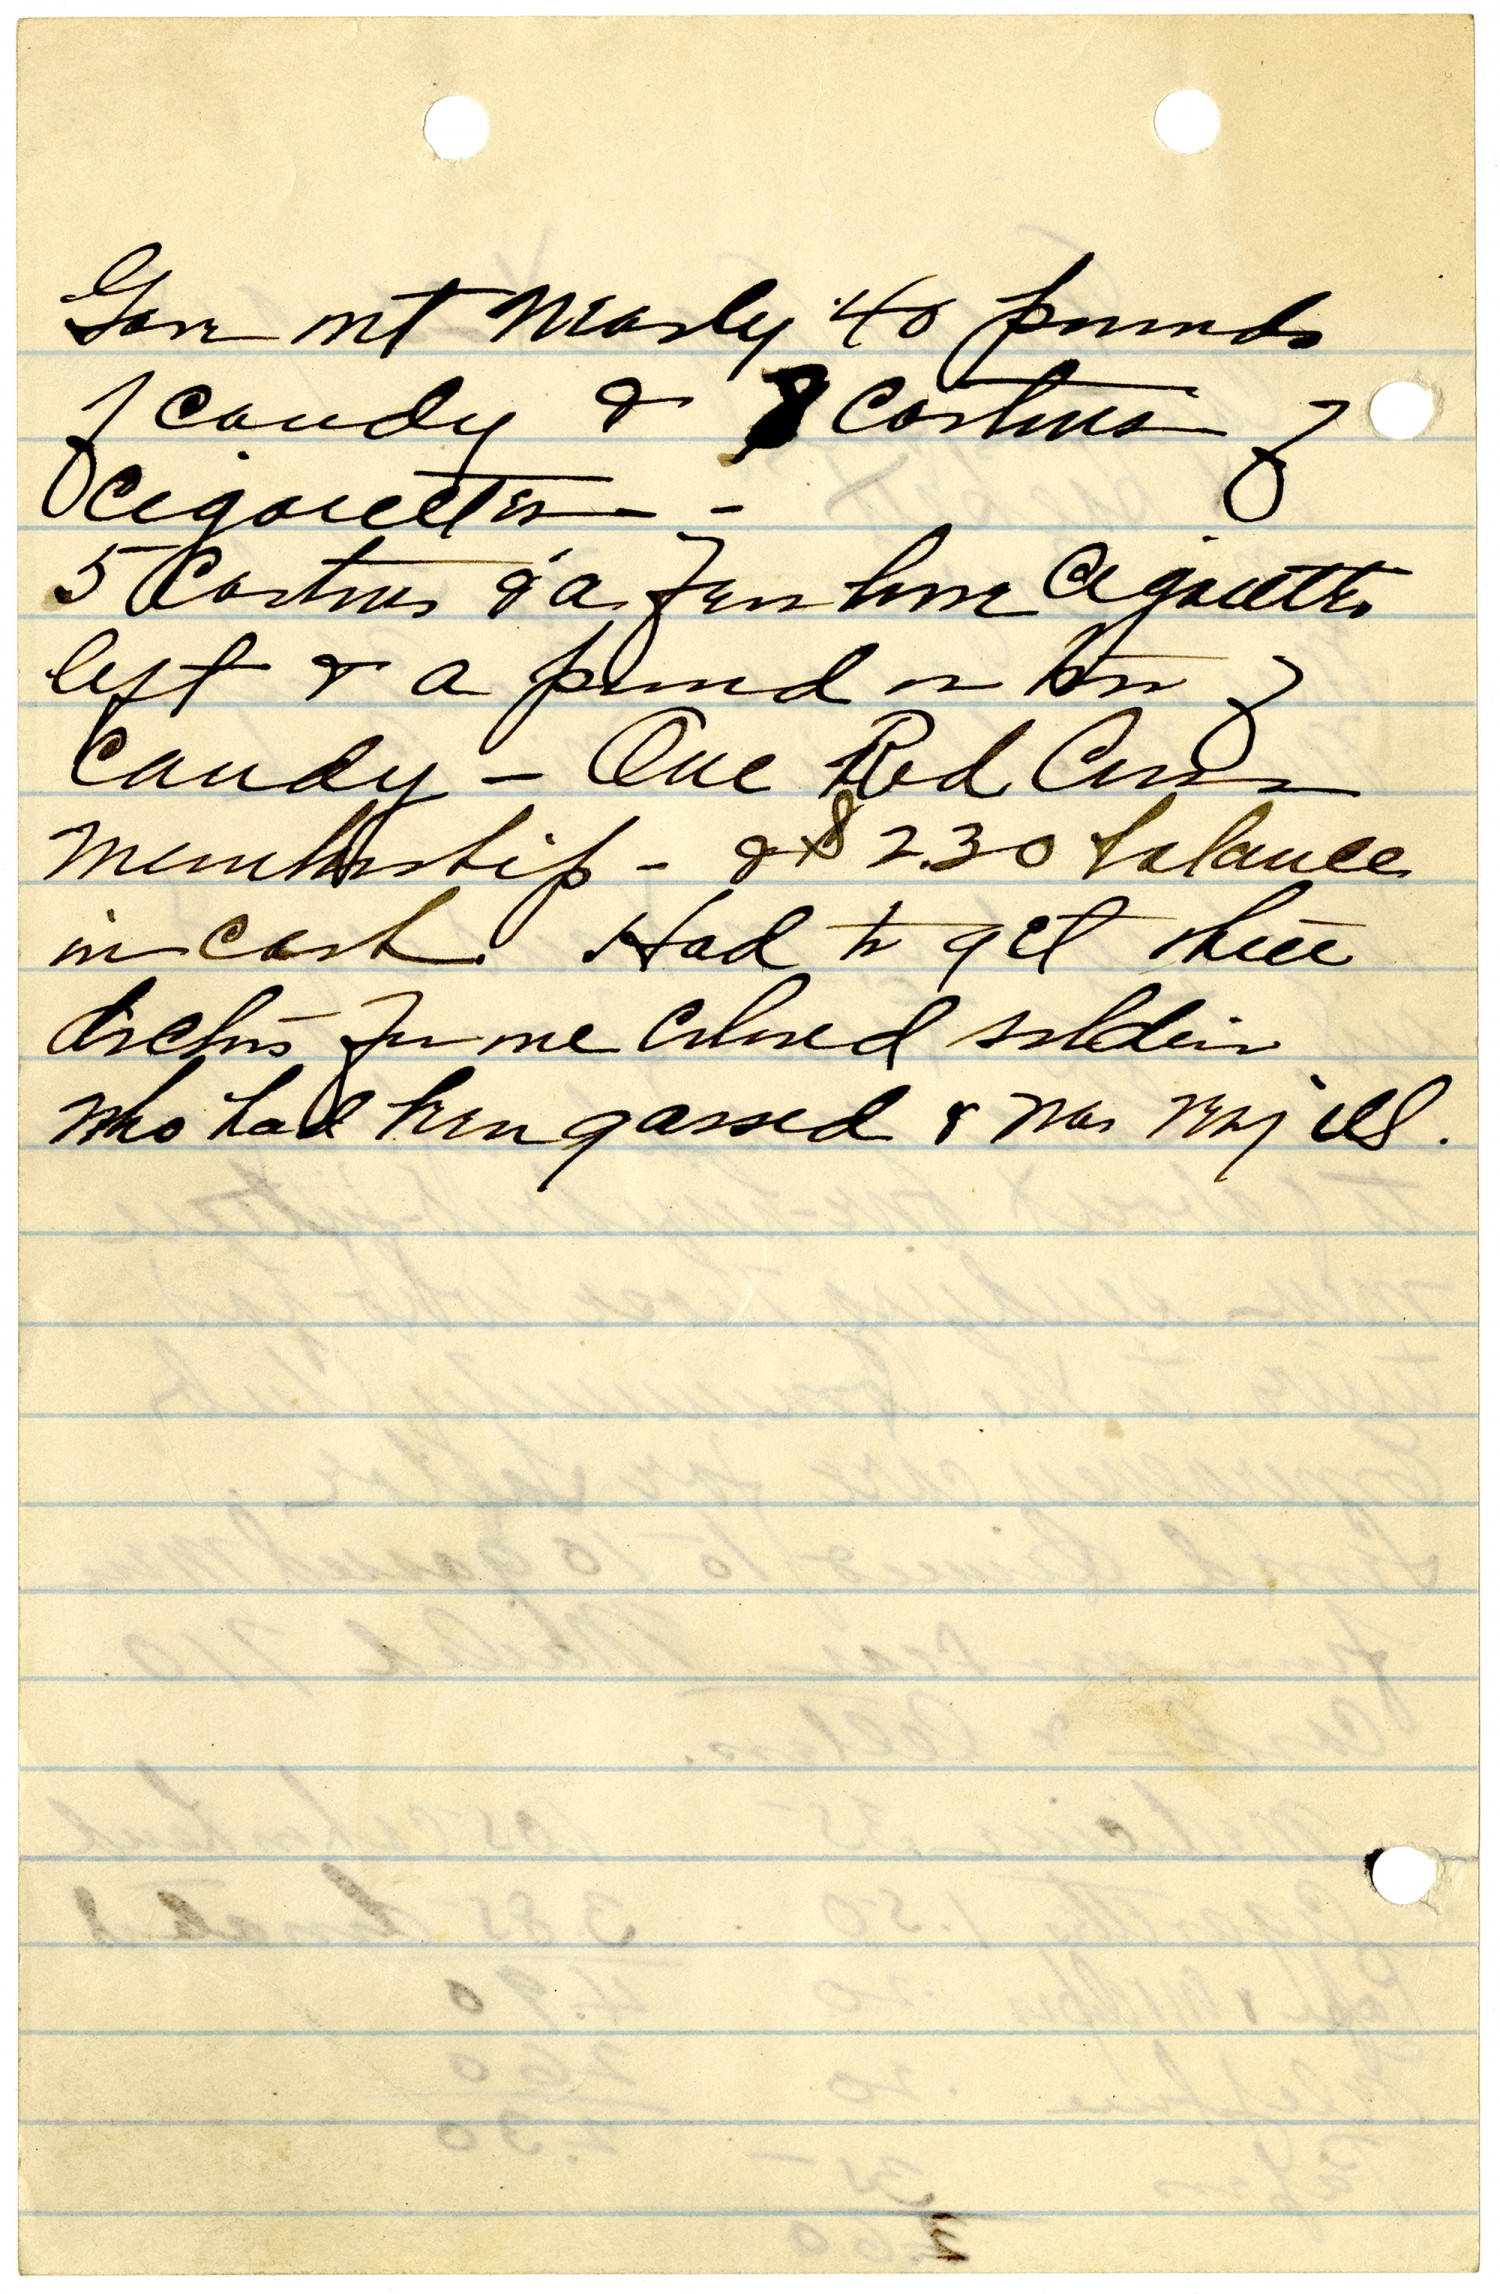 Gave out nearly 40 pounds
of candy & 8 Cartons of
Cigarettes - -
5 Cartons & a few loose Cigarettes
left & a pound or two of
Candy - One Red Cross
Membership - & $2.30 balance
in cash. Had to get three
doctors for one Colored soldier
who had been gassed & was very ill.